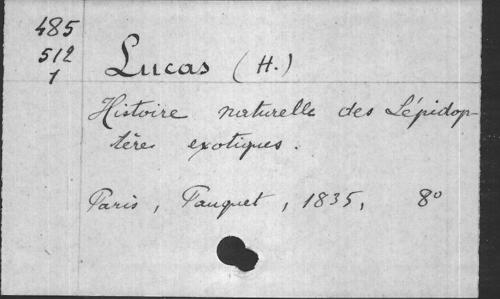 485
512
1
Lucas (H.)
Histoire naturelle des Lépidop-
tères exotiques.
Paris, Pauquet, 1835, 8°